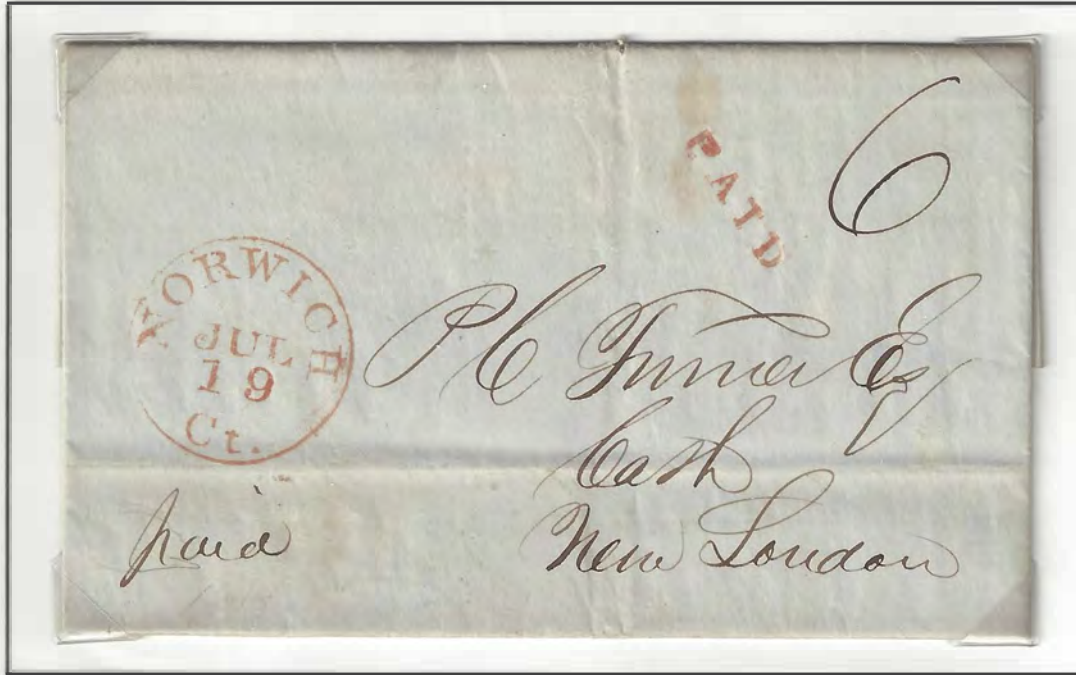 6
PAID
NORWICH
JUL
19
Ct.
P C Turner Esq
Cash
New London
paid